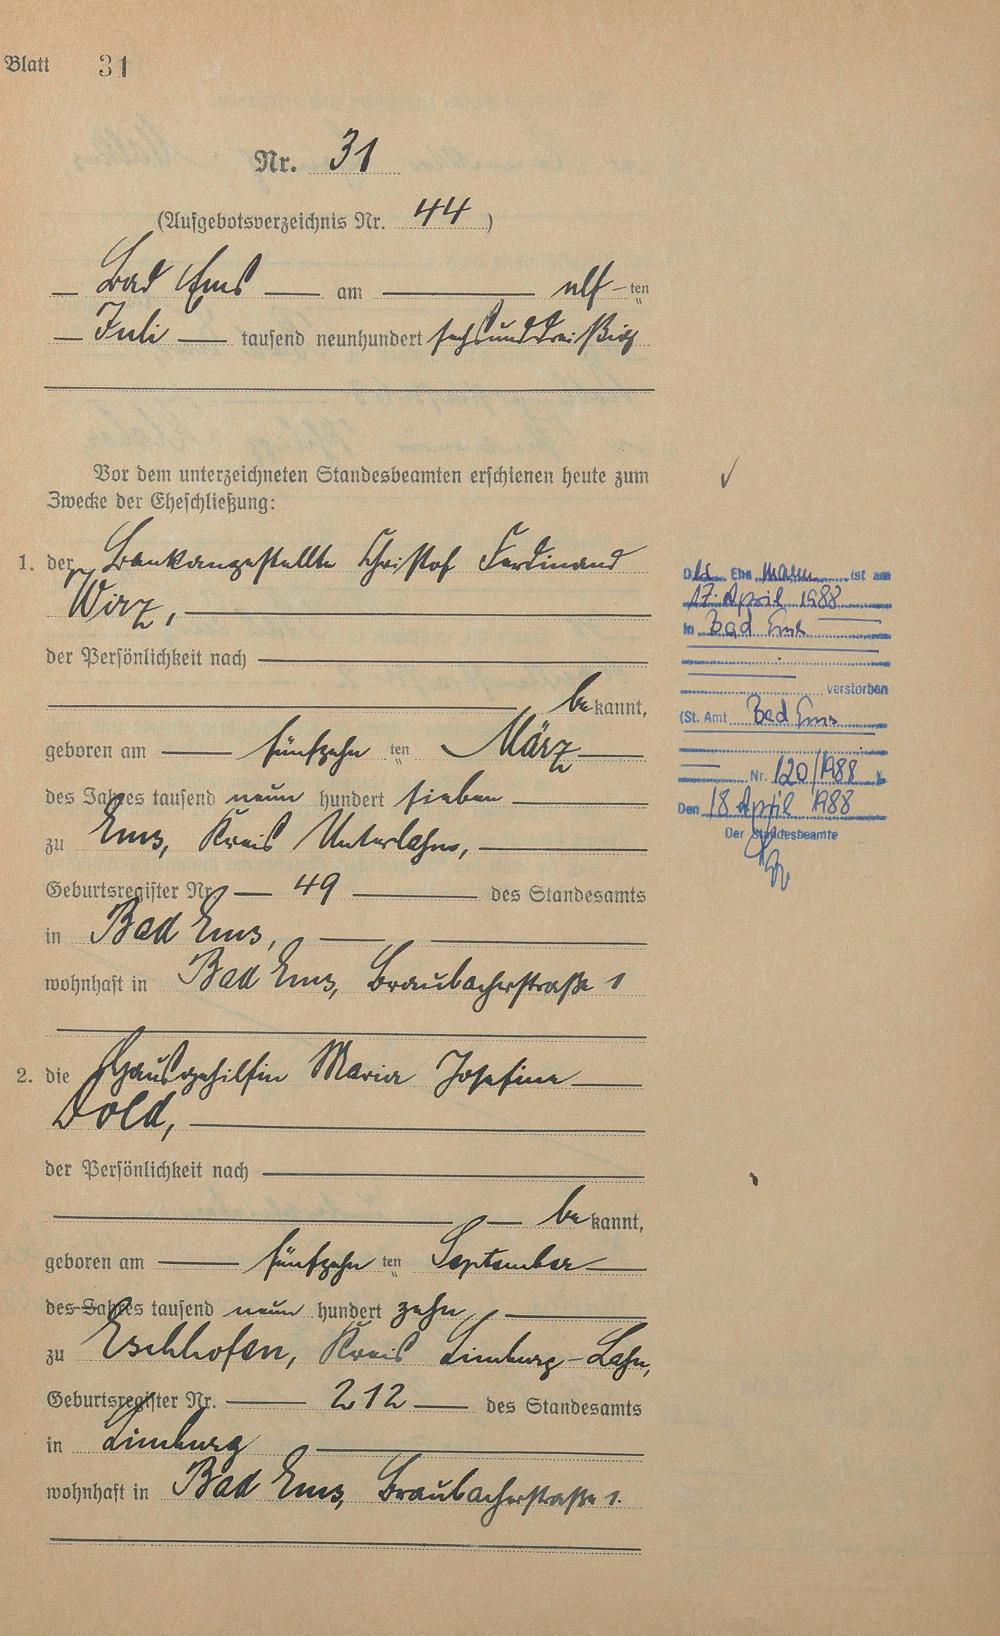 Blatt 31
Nr. 31
(Aufgebotsverzeichnis Nr. 44)
Bad Ems am elf ten
Juli tausend neunhundert sechsunddreißig
Vor dem unterzeichneten Standesbeamten erschienen heute zum
Zwecke der Eheschließung:
1. der Bankangestellte Christof Ferdinand
Wirz,
der Persönlichkeit nach
be kannt,
geboren am fünfzehn ten März
des Jahres tausend neun hundert sieben
zu Ems, Kreis Unterlahn,
Geburtsregister Nr. 49 des Standesamts
in Bad Ems,
wohnhaft in Bad Ems, Braubacherstraße 1
2. die Hausgehilfin Maria Josefine
Dold,
der Persönlichkeit nach
be kannt,
geboren am fünfzehn ten September
des Jahres tausend neun hundert zehn
zu Eschhofen, Kreis Limburg-Lahn,
Geburtsregister Nr. 212 des Standesamts
in Limburg
wohnhaft in Bad Ems, Braubacherstraße 1.
Der Ehemann ist am
17. April 1988
in Bad Ems
verstorben
(St. Amt Bad Ems
Nr. 120/1988 )
Den 18 April 1988
Der Standesbeamte